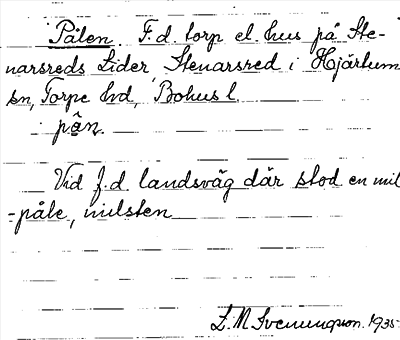 Pålen F.d. torp el. hus på Ste-
narsreds Lider, Stenarsred i Hjärtum
sn, Torpe hd, Bohusl.
pån.
Vid f.d. landsväg där stod en mil
-påle, milsten
L. M. Svenungsson. 1935.